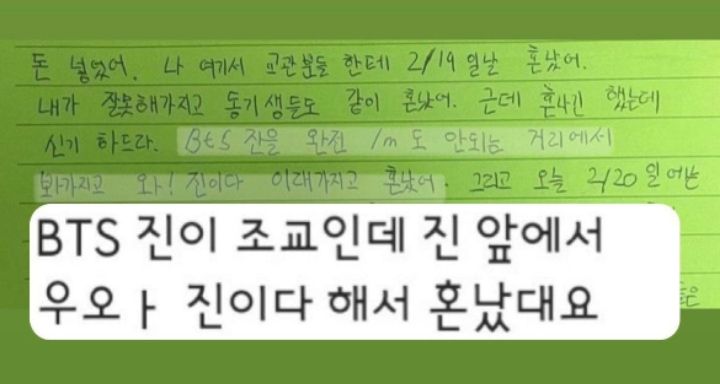 돈 넣었어. 나 여기서 교관분들 한테 2/19 일날 혼났어.
내가 잘못해가지고 동기생들도 같이 혼났어. 근데 혼나긴 했는데
신기 하드라. Bts 진을 완전 1m 도 안되는 거리에서
봐가지고 와! 진이다 이래가지고 혼났어. 그리고 오늘 2/20 일에는
BTS 진이 조교인데 진 앞에서
우오ㅏ 진이다 해서 혼났대요